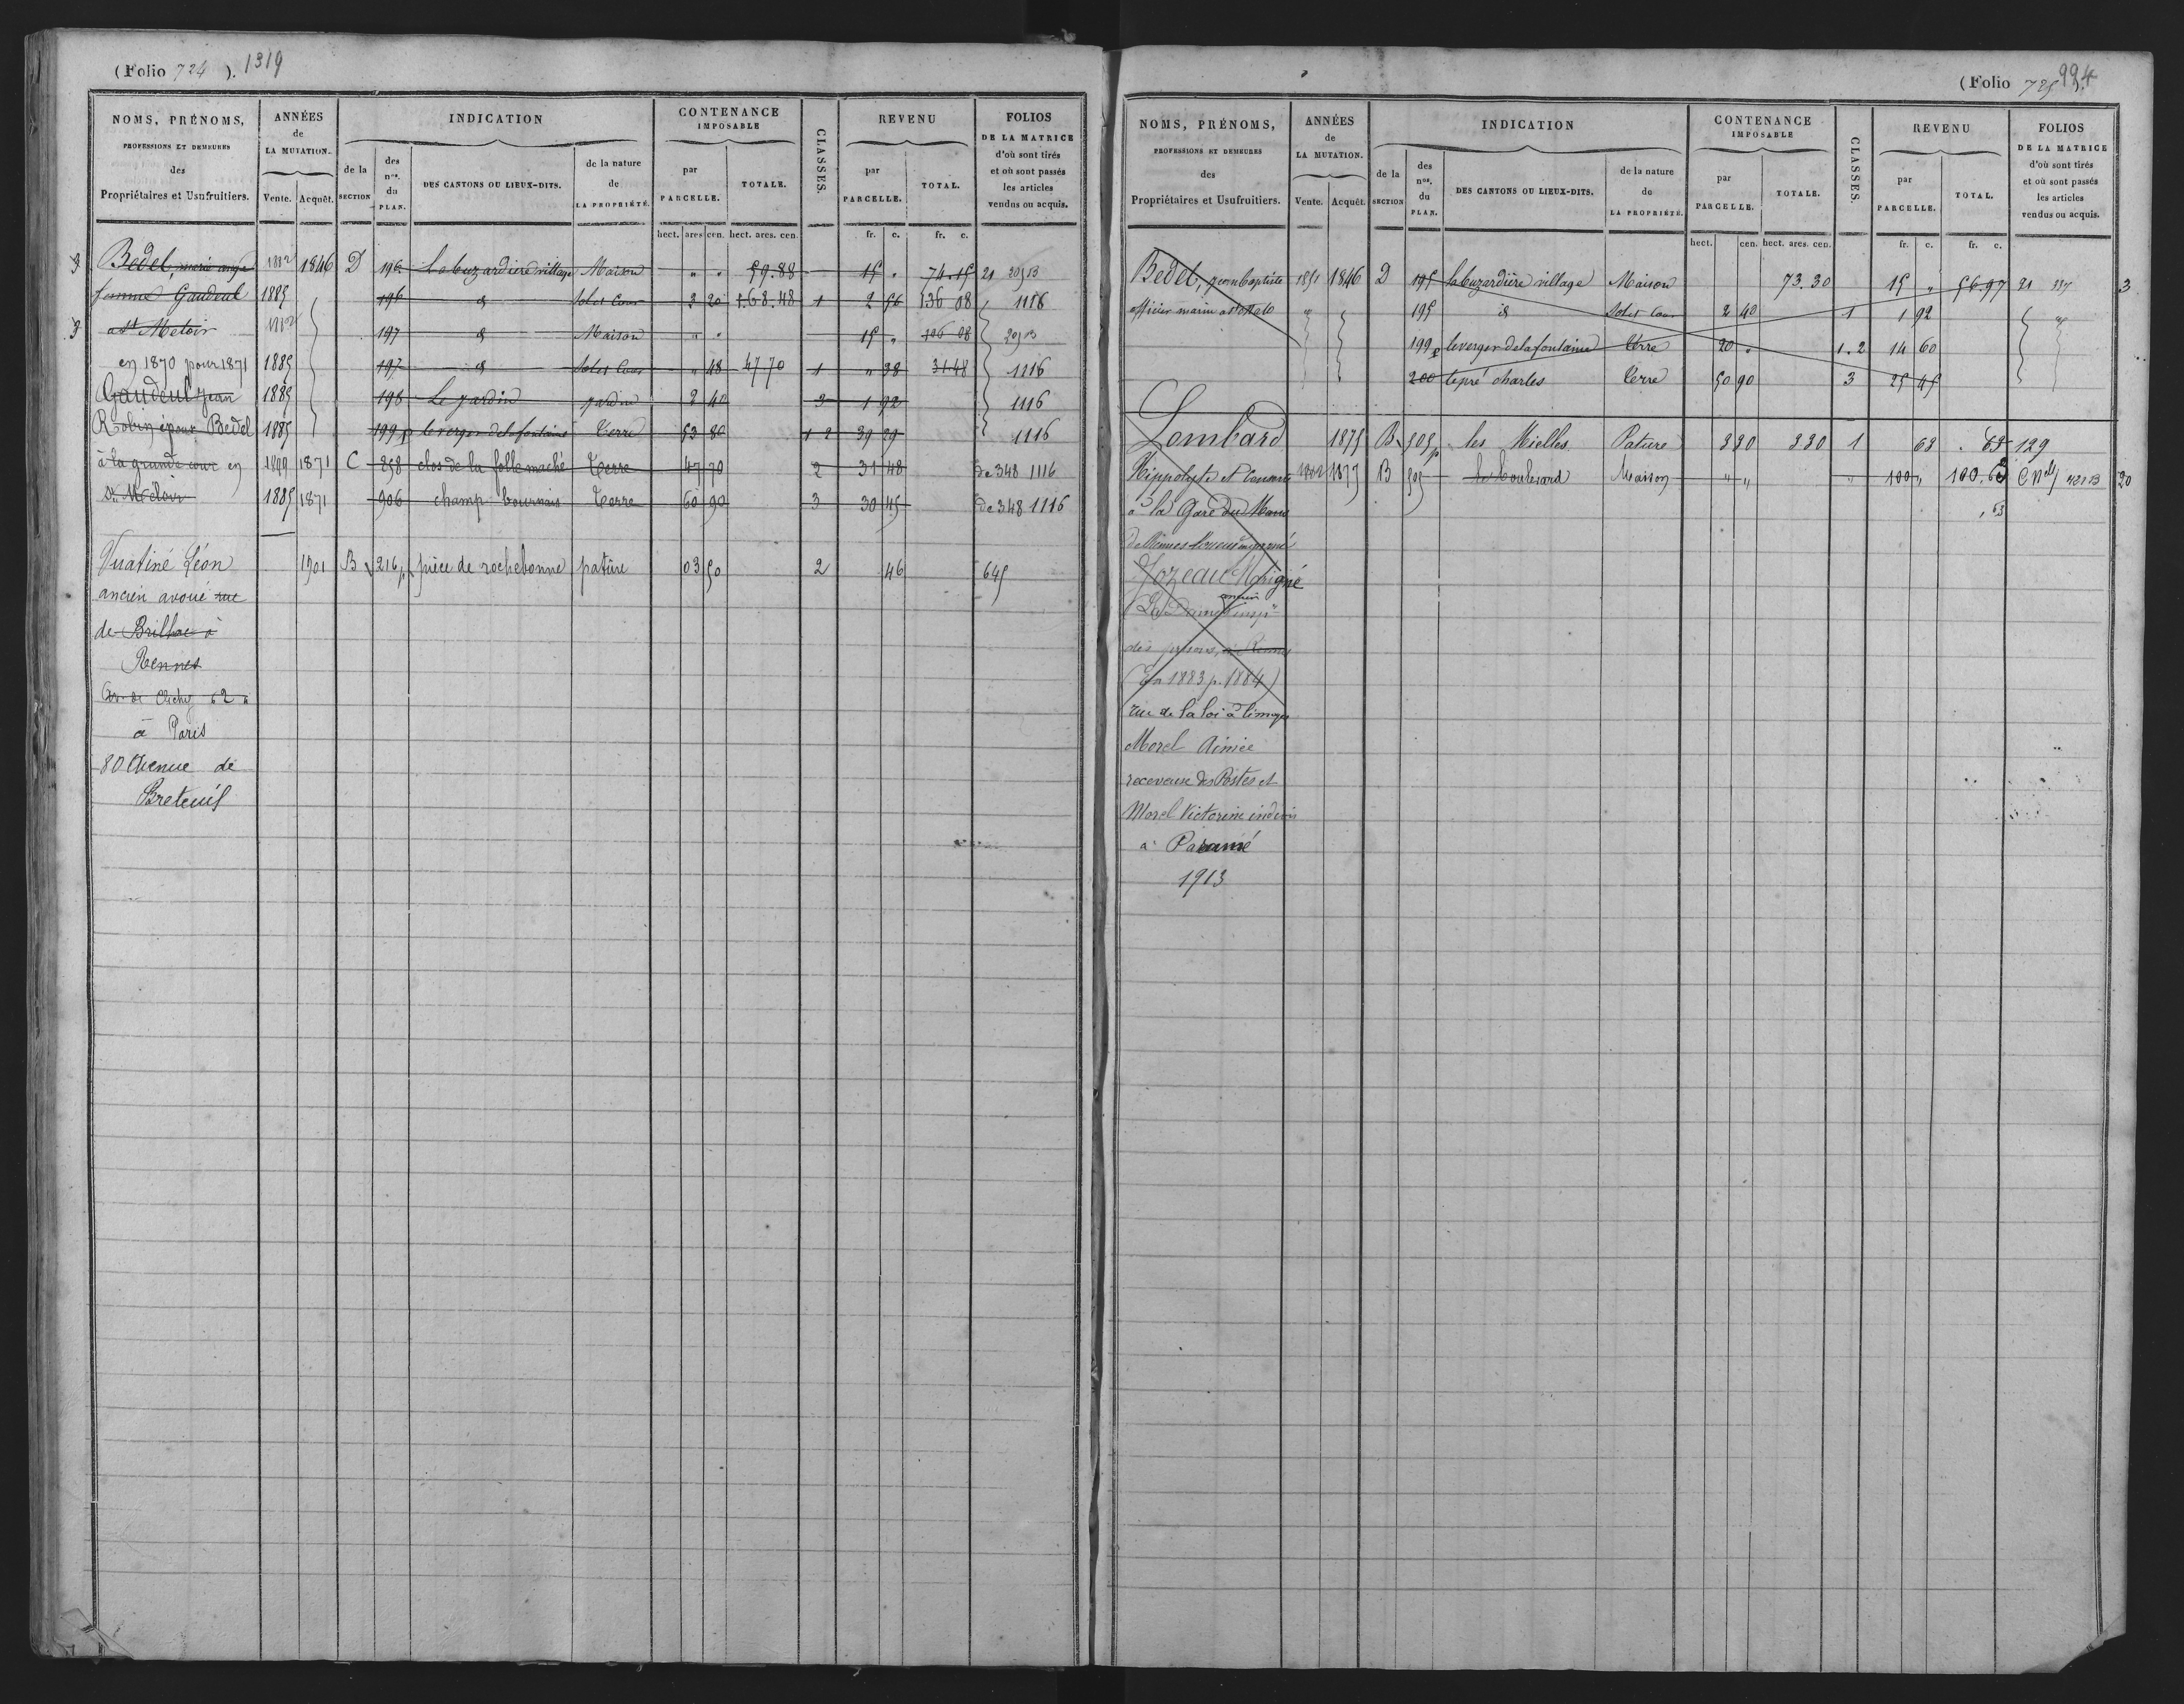 (Folio 724 ). 1319
NOMS, PRÉNOMS,
PROFESSIONS ET DEMEURES
des
Propriétaires et Usufruitiers.
ANNÉES
de
LA MUTATION.
Vente. Acquêt.
INDICATION
de la
SECTION
des
nos.
du
PLAN.
DES CANTONS OU LIEUX-DITS.
de la nature
de
LA PROPRIÉTÉ.
CONTENANCE
IMPOSABLE
par
PARCELLE.
TOTALE.
hect. ares cen. hect. ares. cen.
CLASSES.
REVENU
par
PARCELLE.
TOTAL.
fr. c. fr. c.
FOLIOS
DE LA MATRICE
d'où sont tirés
et où sont passés
les articles
vendus ou acquis.
3 Bedel, marie ange 1882 1846 D 196 La buzardière village Maison " " 59.88 15 " 74.15 21
femme Gaudeul 1885 196 id Sol et Cour 3 20 1.68.48 1 2 56 136 08 1116
3 a St Meloir 1882 197 id Maison " " 15 " 106 08
en 1870 pour 1871 1885 197 id Sol et Cour " 48 47.70 1 " 38 31.48 1116
Gaudeul Jean 1885 198 Le jardin jardin 2 40 3 1 92 1116
Robin époux Bedel 1885 199 p le verger de la fontaine Terre 53 80 1 2 39 29 1116
à la grande cour en 1899 1871 C 258 clos de la folle maché Terre 47 70 2 31 48 de 348 1116
St Méloir 1885 1871 906 champ tournais Terre 60 90 3 30 45 de 348 1116
Vuatiné Léon 1901 B 216 p pièce de rochebonne pature 03 50 2 46 645
ancien avoué rue
de Brilhac à
Rennes
Av. de Clichy 62
à Paris
80 Avenue de
Breteuil
(Folio 725 ). 994
NOMS, PRÉNOMS,
PROFESSIONS ET DEMEURES
des
Propriétaires et Usufruitiers.
ANNÉES
de
LA MUTATION.
Vente. Acquêt.
INDICATION
de la
SECTION
des
nos.
du
PLAN.
DES CANTONS OU LIEUX-DITS.
de la nature
de
LA PROPRIÉTÉ.
CONTENANCE
IMPOSABLE
par
PARCELLE.
TOTALE.
hect. cen. hect. ares. cen.
CLASSES.
REVENU
par
PARCELLE.
TOTAL.
fr. c. fr. c.
FOLIOS
DE LA MATRICE
d'où sont tirés
et où sont passés
les articles
vendus ou acquis.
Bedel, jean baptiste 1851 1846 D 195 la buzardière village Maison 73.30 15 " 56.97 21 3
officier marin a St Malo " 195 id Sol et Cour 2 40 1 1 92 "
199 p le verger de la fontaine Terre 20 " 1.2 14 60
200 le pré charles Terre 50 90 3 25 45
Lombard 1875 B 505 p les Mielles Pature 3 30 3 30 1 63 . 63 129
Hippolyte et 1882 1877 B 505 le boulevard Maison " " " 100 " 100.63 C Nelle 30
à la Gare du Mans , 63
de Rennes
Jozeau Marigné
ancien
des prisons, à Rennes
(En 1883 p. 1884)
rue de la loi à limoges
Morel Aimée
receveuse des Postes et
Morel Victorine indivis
à Paramé
1913